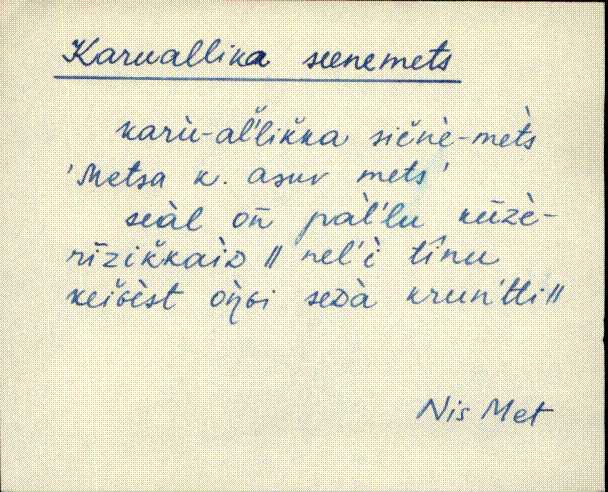 Karuallika seenemets
karù-al̆'likka sienè-mèts
'Metsa k. asuv mets'
seàl oñ pàl'lu kūzè-
rīzikkaìᴅ || nel'ì tīnu
keiɢèst oŋ̀ɢi seᴅà krun'tti ||
Nis Met